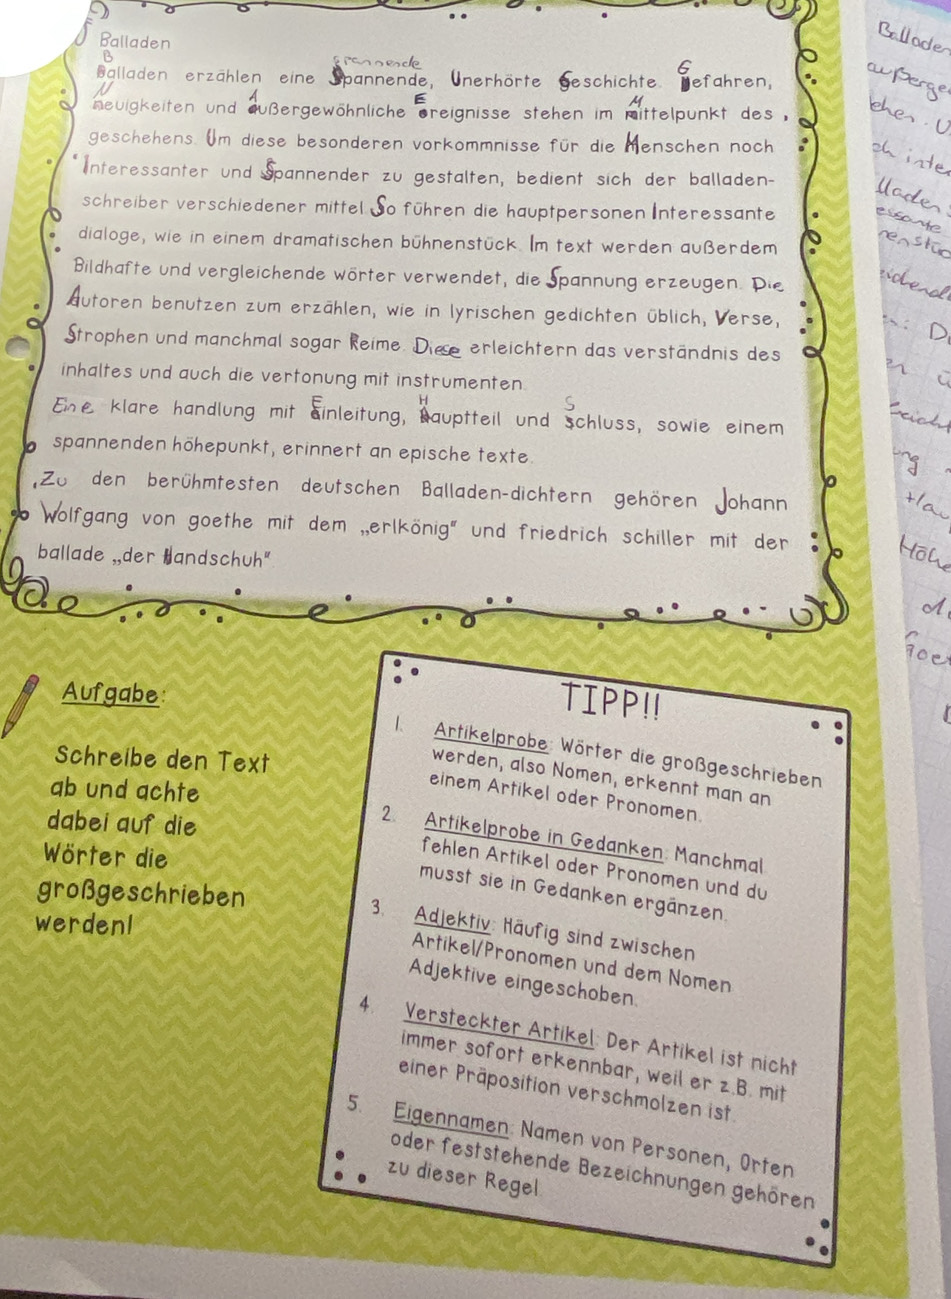 Balladen
Balladen erzählen eine Spannende, Unerhörte Geschichte. Gefahren,
Neuigkeiten und Außergewöhnliche Ereignisse stehen im Mittelpunkt des
geschehens. Um diese besonderen vorkommnisse für die Menschen noch
Interessanter und Spannender zu gestalten, bedient sich der balladen-
schreiber verschiedener mittel. So führen die hauptpersonen Interessante
dialoge, wie in einem dramatischen bühnenstück. Im text werden außerdem
Bildhafte und vergleichende wörter verwendet, die Spannung erzeugen. Die
Autoren benutzen zum erzählen, wie in lyrischen gedichten üblich, Verse,
Strophen und manchmal sogar Reime. Diese erleichtern das verständnis des
inhaltes und auch die vertonung mit instrumenten.
Eine klare handlung mit Einleitung, Hauptteil und Schluss, sowie einem
spannenden höhepunkt, erinnert an epische texte.
Zu den berühmtesten deutschen Balladen-dichtern gehören Johann
Wolfgang von goethe mit dem „erlkönig“ und friedrich schiller mit der
ballade „der Handschuh“
Aufgabe:
Schreibe den Text
ab und achte
dabei auf die
Wörter die
großgeschrieben
werden!
TIPP!!
1. Artikelprobe: Wörter die großgeschrieben
werden, also Nomen, erkennt man an
einem Artikel oder Pronomen.
2. Artikelprobe in Gedanken: Manchmal
fehlen Artikel oder Pronomen und du
musst sie in Gedanken ergänzen.
3. Adjektiv: Häufig sind zwischen
Artikel/Pronomen und dem Nomen
Adjektive eingeschoben.
4. Versteckter Artikel: Der Artikel ist nicht
immer sofort erkennbar, weil er z.B. mit
einer Präposition verschmolzen ist.
5. Eigennamen: Namen von Personen, Orten
oder feststehende Bezeichnungen gehören
zu dieser Regel
Balladen